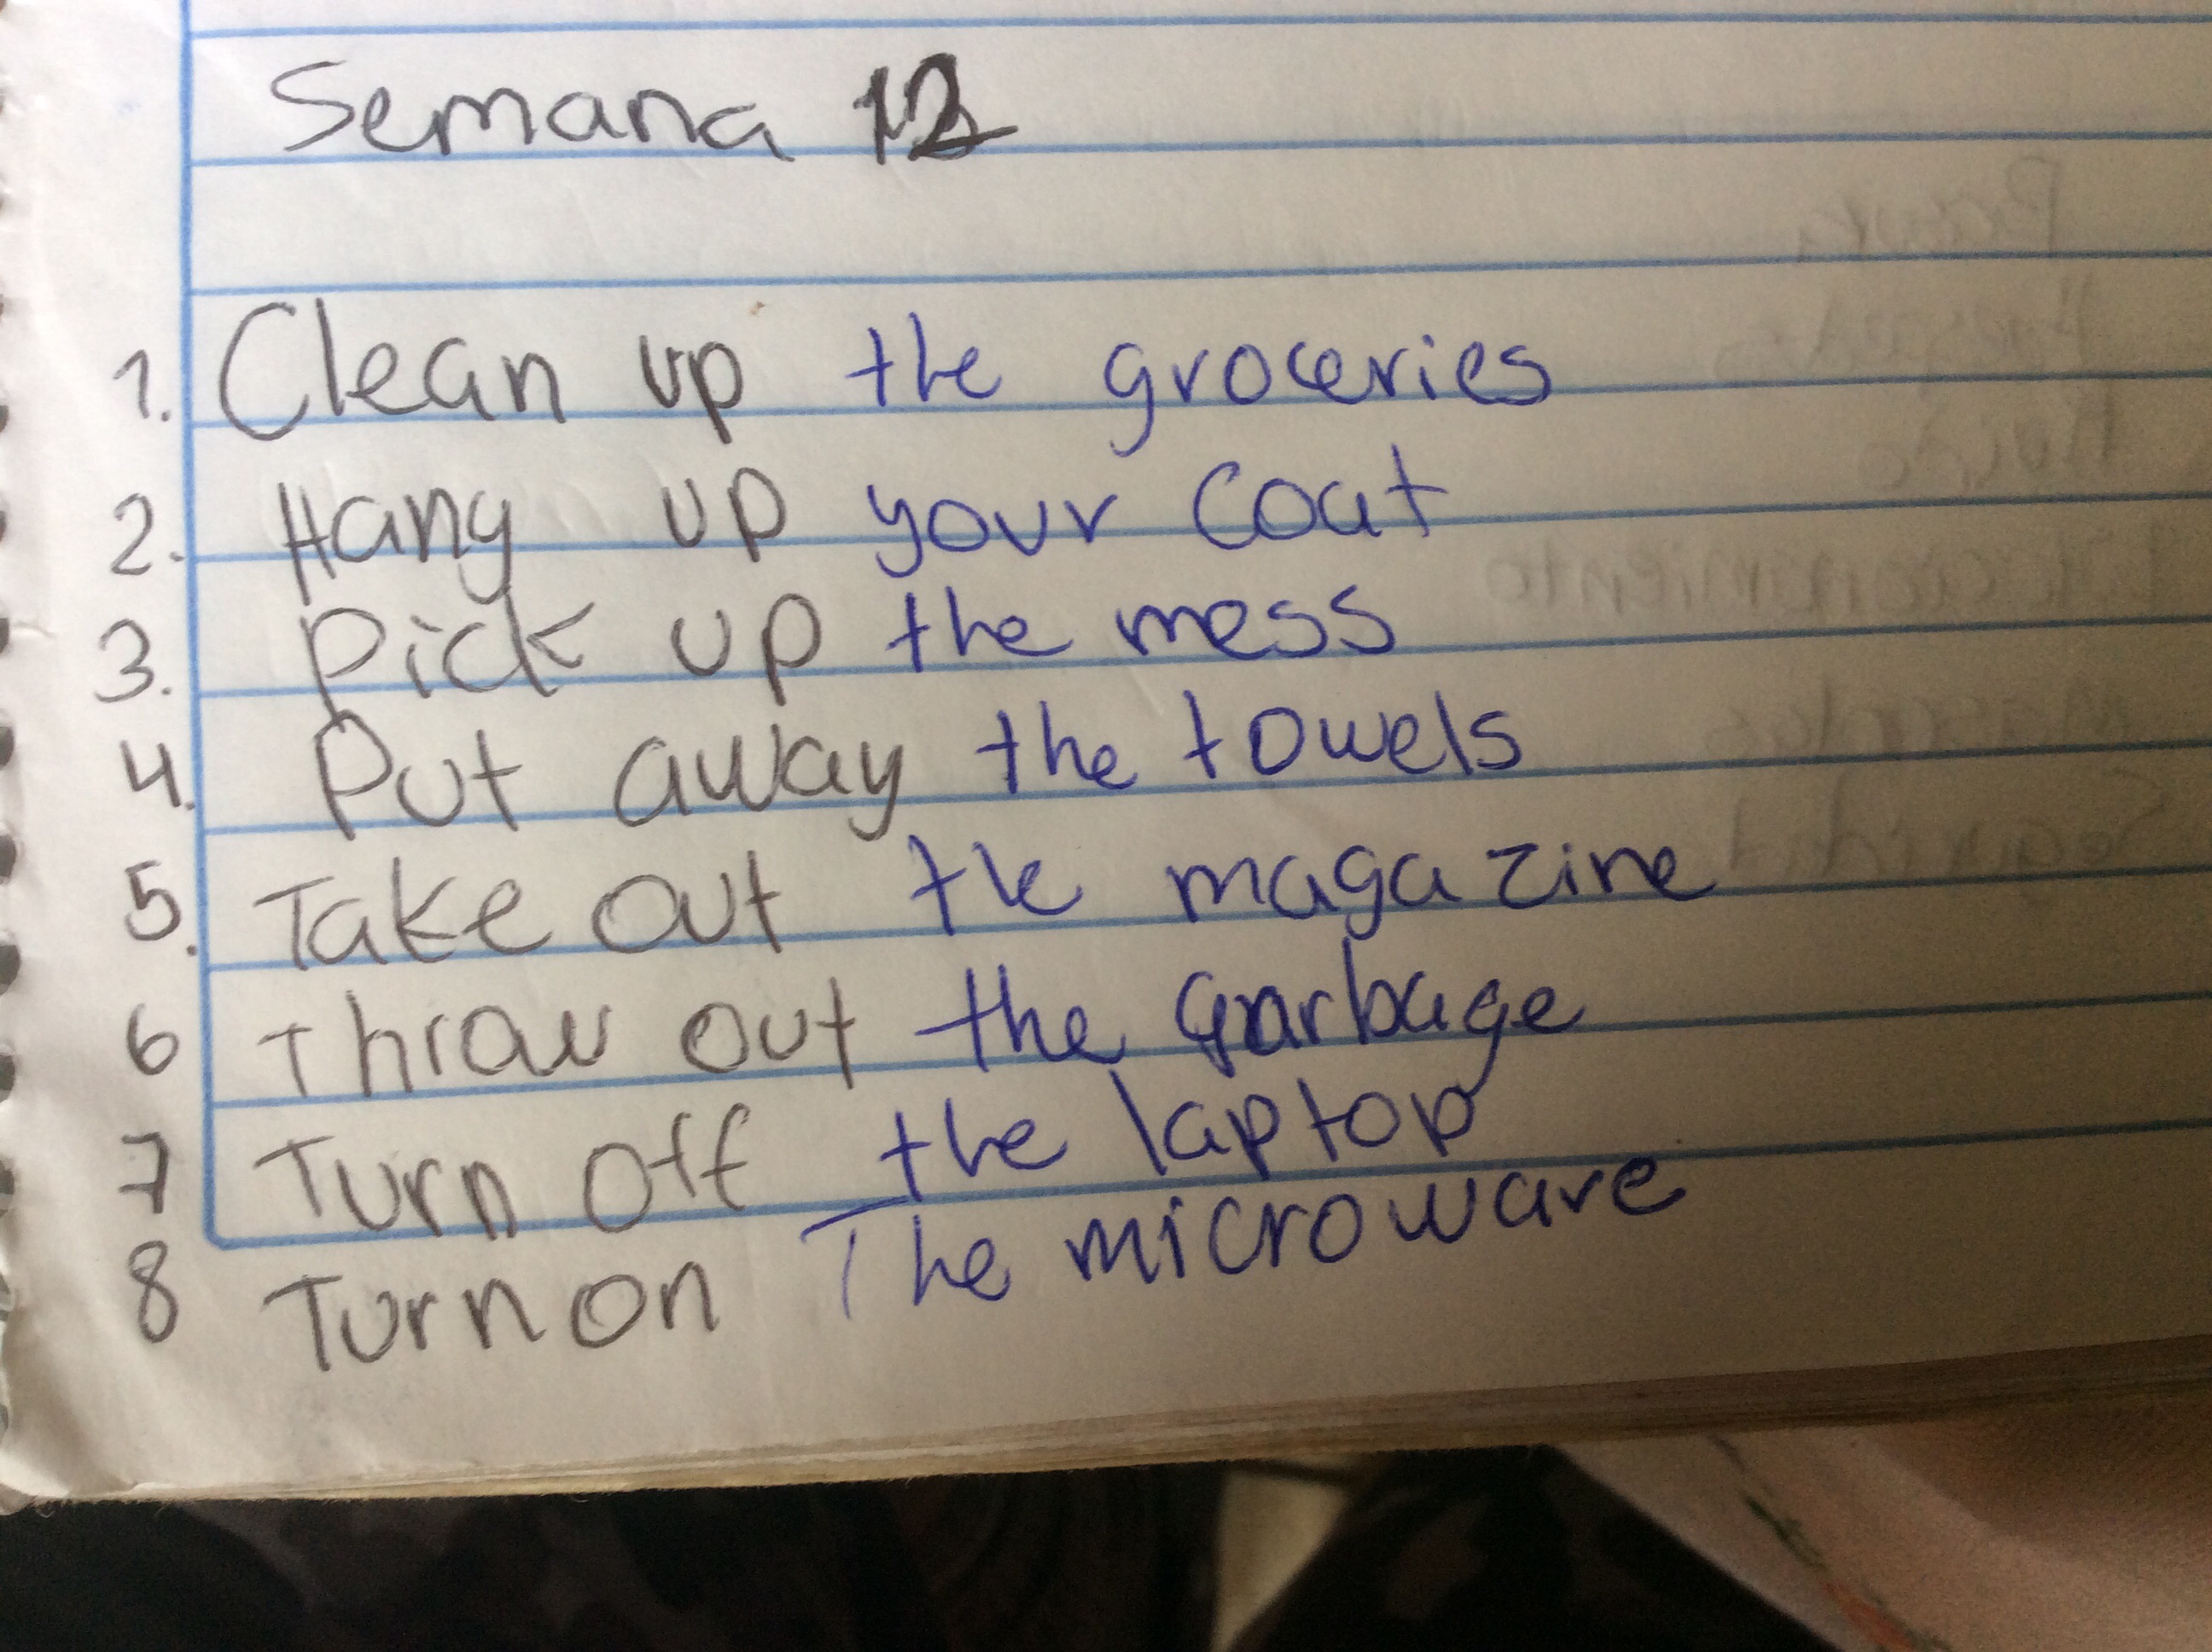 Semana 12
1. Clean up the groceries
2. Hang up your coat
3. Pick up the mess
4. Put away the towels
5. Take out the magazine
6 Throw out the garbage
7 Turn off the laptop
8 Turn on The microwave